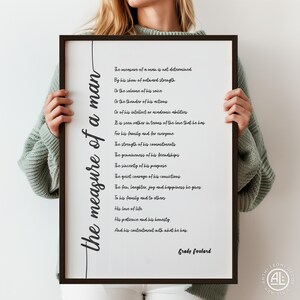 the measure of a man
The measure of a man is not determined
By his show of outward strength
Or the volume of his voice
Or the thunder of his actions
Or of his intellect or academic abilities
It is seen rather in terms of the love that he has
For his family and for everyone
The strength of his commitments
The genuineness of his friendships
The sincerity of his purpose
The quiet courage of his convictions
The fun, laughter, joy and happiness he gives
To his family and to others
His love of life
His patience and his honesty
And his contentment with what he has.
Grady Poulard